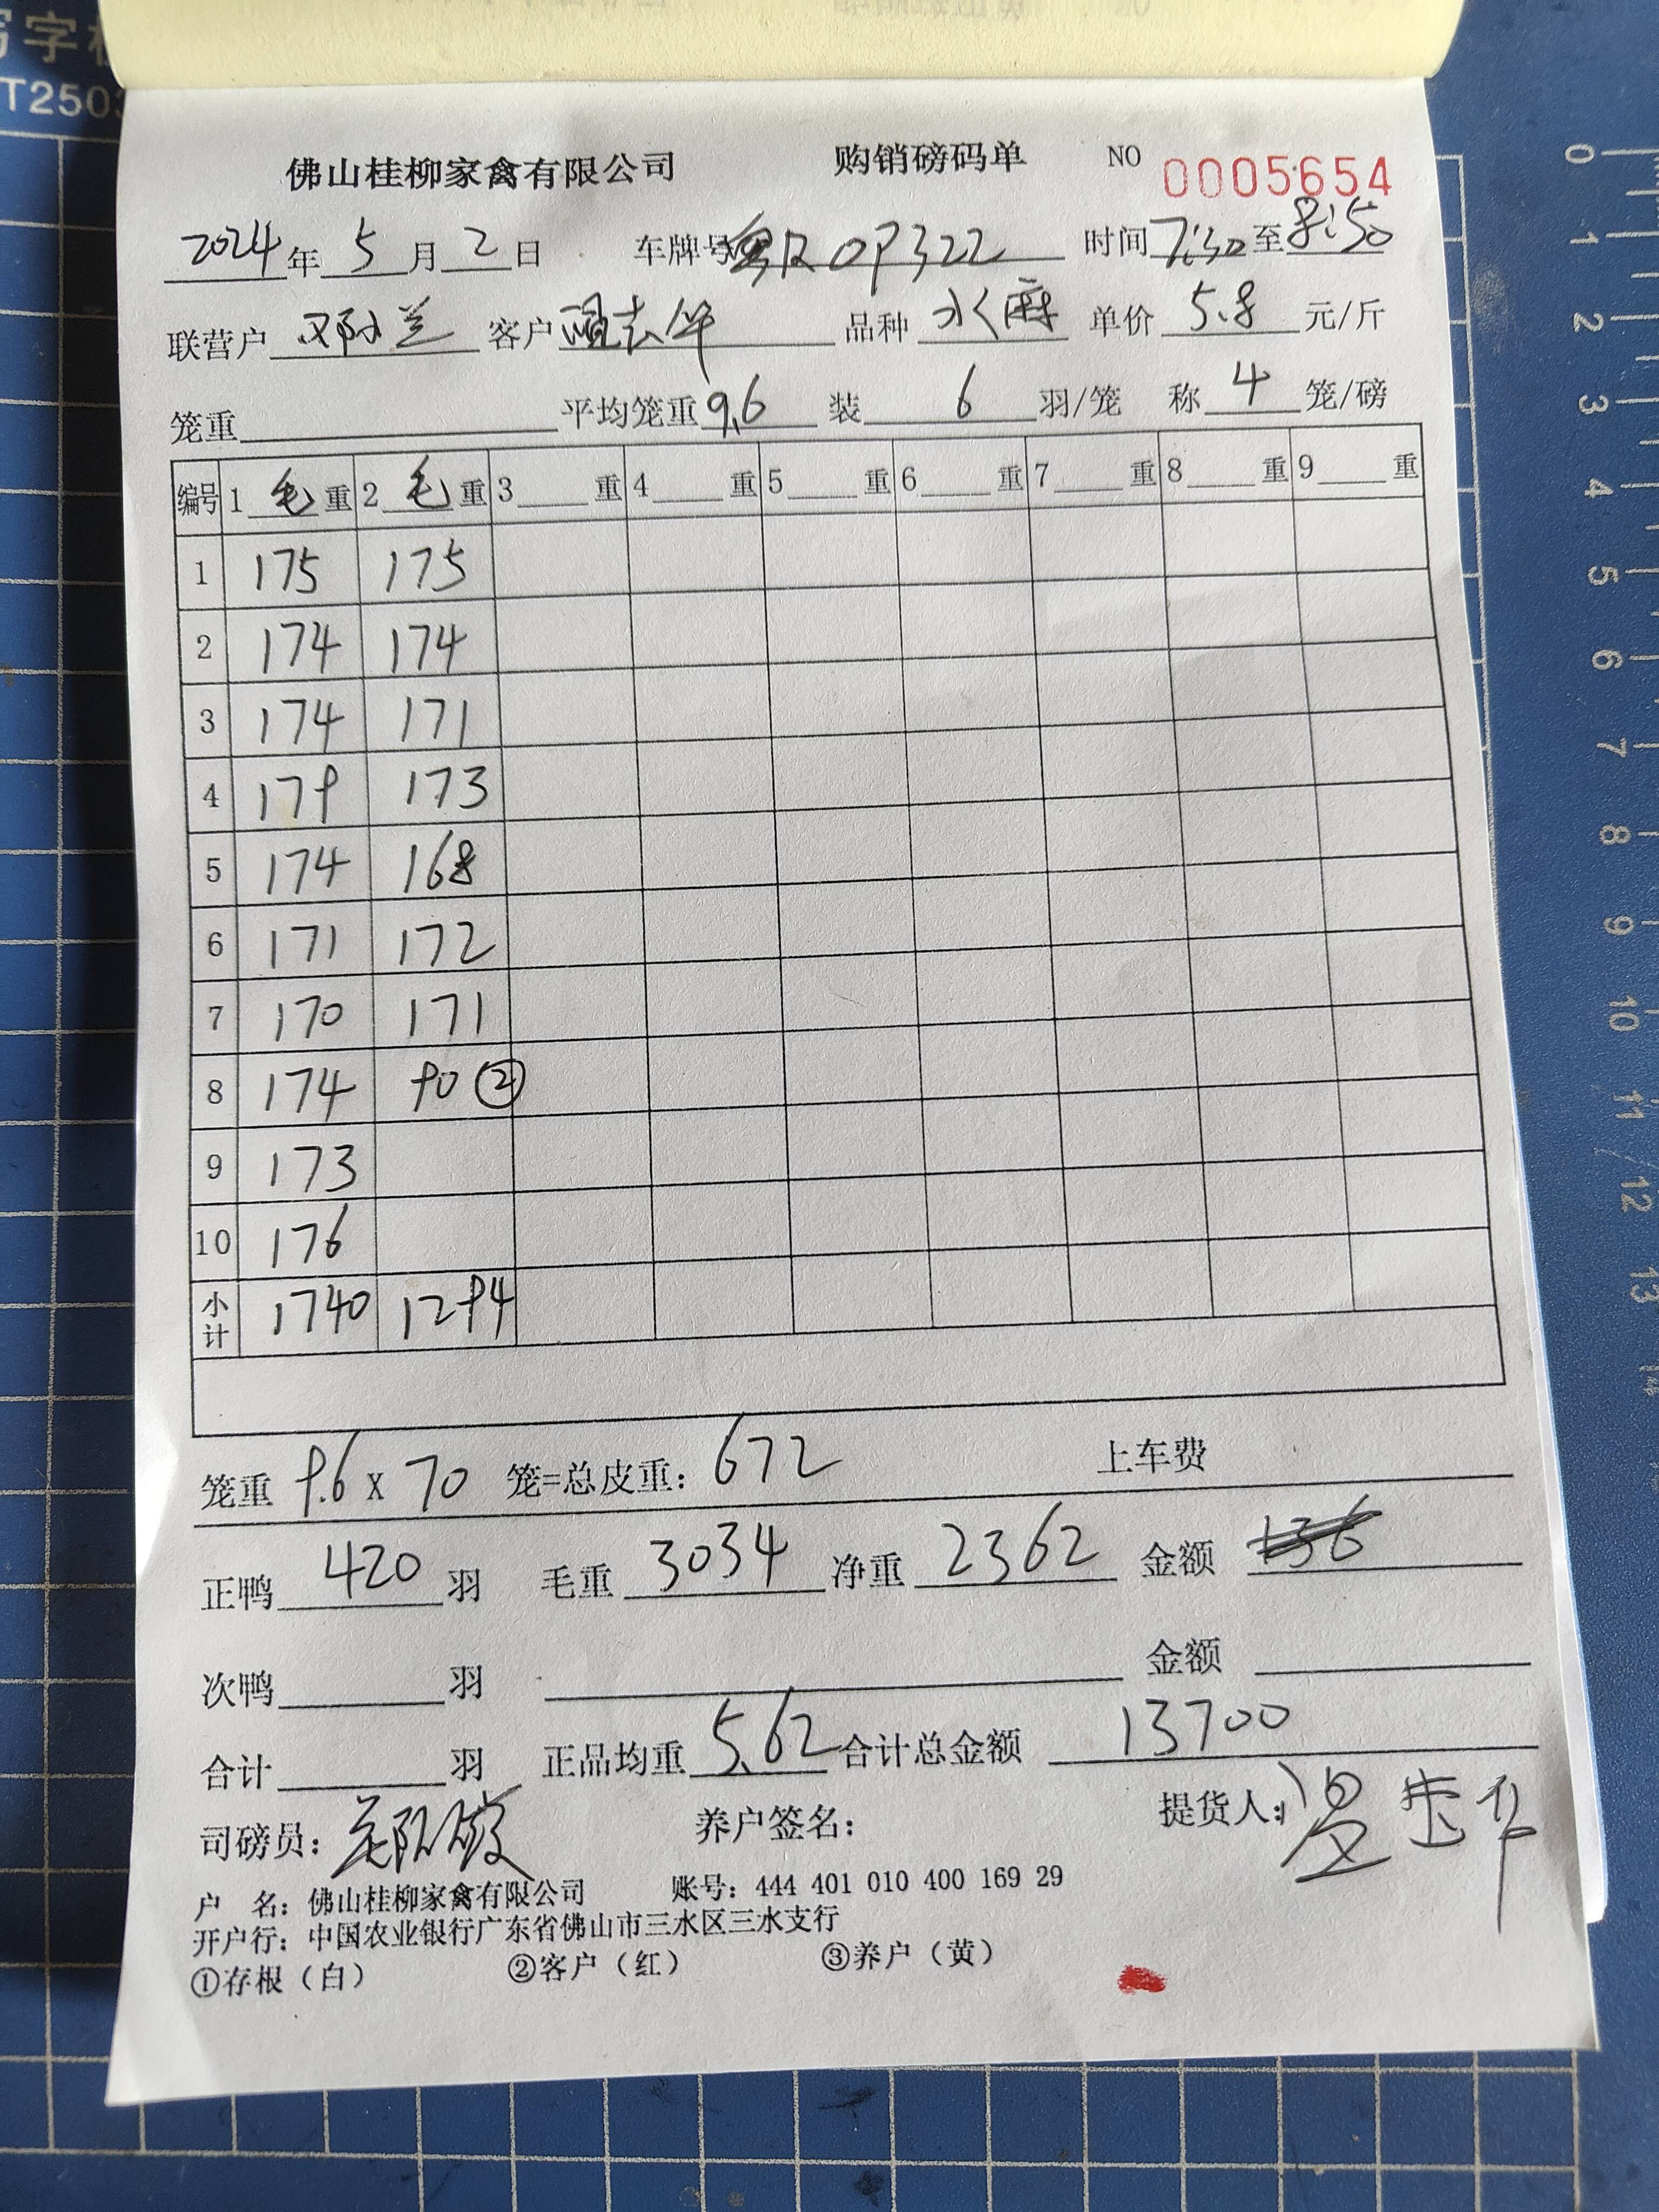 T250
佛山桂柳家禽有限公司 购销磅码单 NO 0005654
2024年 5 月 2 日 车牌号 粤R 0P322 时间 7:30 至 8:50
联营户 邓小兰 客户 温志华 品种 水麻 单价 5.8 元/斤
笼重 平均笼重 9.6 装 6 羽/笼 称 4 笼/磅
编号 1 毛 重 2 毛 重 3 重 4 重 5 重 6 重 7 重 8 重 9 重
1 175 175
2 174 174
3 174 171
4 179 173
5 174 168
6 171 172
7 170 171
8 174 90 ②
9 173
10 176
小计 1740 1294
笼重 9.6 X 70 笼=总皮重: 672 上车费
正鸭 420 羽 毛重 3034 净重 2362 金额 136
次鸭 羽 金额
合计 羽 正品均重 5.62 合计总金额 13700
司磅员: 养户签名: 提货人:
户 名: 佛山桂柳家禽有限公司 账号: 444 401 010 400 169 29
开户行: 中国农业银行广东省佛山市三水区三水支行
①存根(白) ②客户(红) ③养户(黄)
0
1
2
3
4
5
6
7
8
9
10
11
12
13